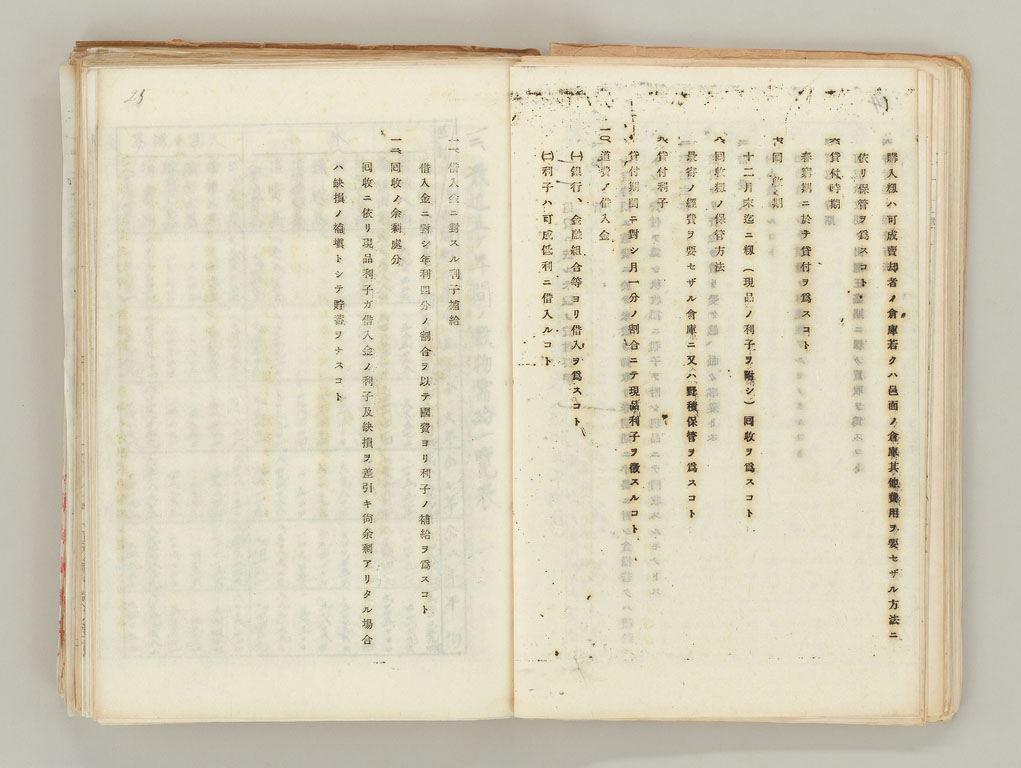 購入籾ハ可成賣却者ノ倉庫若クハ邑面ノ倉庫其他費用ヲ要セザル方法ニ
依リ保管ヲ爲スコト
六、貸付時期
春窮期ニ於テ貸付ヲ爲スコト
七、回收期
十二月末迄ニ籾(現品ノ利子ヲ附シ)回收ヲ爲スコト
八、回收籾ノ保管方法
最寄ノ經費ヲ要セザル倉庫ニ又ハ野積保管ヲ爲スコト
九、貸付利子
貸付期間ニ對シ月一分ノ割合ニテ現品利子ヲ徴スルコト
一〇、道費ノ借入金
(一)銀行、金融組合等ヨリ借入ヲ爲スコト
(二)利子ハ可成低利ニ借入ルコト
25
一一、借入金ニ對スル利子補給
借入金ニ對シ年利四分ノ割合ヲ以テ國費ヨリ利子ノ補給ヲ爲スコト
一二、回收ノ余剩處分
回收ニ依リ現品利子ガ借入金ノ利子及缺損ヲ差引キ尚余剩アリタル場合
ハ缺損ノ補塡トシテ貯蓄ヲナスコト